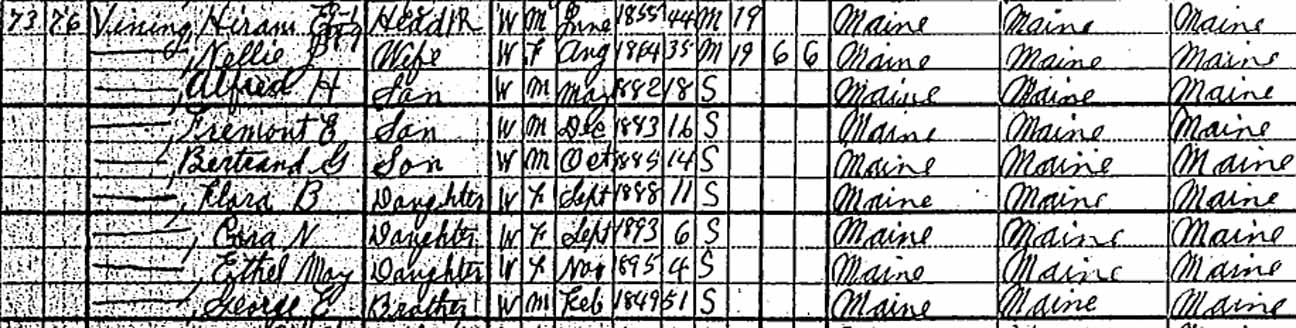 73 76 Vining, Hiram E Head W M June 1855 44 M 19 Maine Maine Maine
———, Nellie B Wife W F Aug 1864 35 M 19 6 6 Maine Maine Maine
———, Alfred H Son W M Mar 1882 18 S Maine Maine Maine
———, Fremont E Son W M Dec 1883 16 S Maine Maine Maine
———, Bertrand G Son W M Oct 1885 14 S Maine Maine Maine
———, Flora B Daughter W F Sept 1888 11 S Maine Maine Maine
———, Cora N Daughter W F Sept 1893 6 S Maine Maine Maine
———, Ethel May Daughter W F Nov 1895 4 S Maine Maine Maine
———, George E Brother W M Feb 1849 51 S Maine Maine Maine